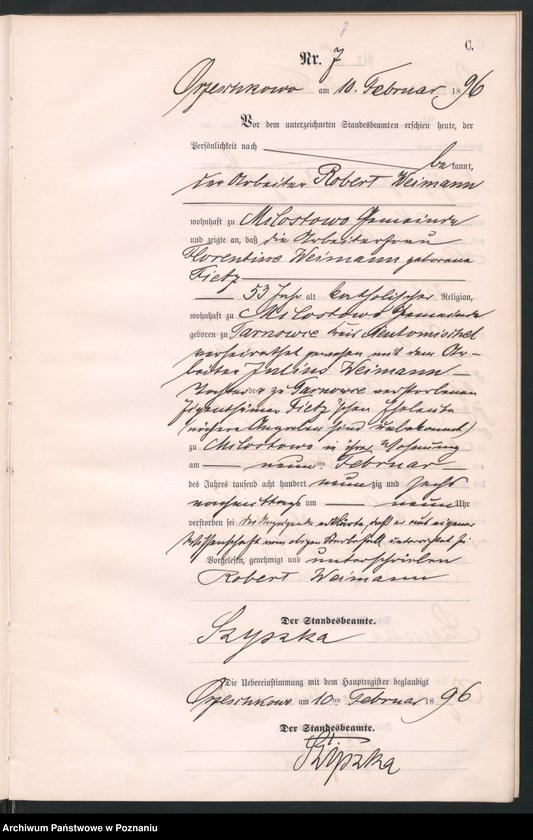 7
C.
Nr. 7
Orzeschkowo am 10. Februar 1896
Vor dem unterzeichneten Standesbeamten erschien heute, der
Persönlichkeit nach
bekannt,
der Arbeiter Robert Weimann
wohnhaft zu Milostowo Gemeinde
und zeigte an, daß die Arbeiterfrau
Florentine Weimann geborene
Fietz
53 Jahr alt katholischer Religion,
wohnhaft zu Milostowo Gemeinde
geboren zu Tarnowce Kreis Neutomischel
verheirathet gewesen mit dem Ar-
beiter Julius Weimann
Tochter der zu Tarnowce verstorbenen
Eigenthümer Fietz'schen Eheleute
(nähere Angaben sind unbekannt)
zu Milostowo in ihrer Wohnung
am neunten Februar
des Jahres tausend acht hundert neunzig und sechs
nachmittags um neun Uhr
verstorben sei der Anzeigende erklärte, daß er aus eigener
Wissenschaft vom obigen Sterbefall unterrichtet sei
Vorgelesen, genehmigt und unterschrieben
Robert Weimann
Der Standesbeamte.
Szyszka
Die Uebereinstimmung mit dem Hauptregister beglaubigt
Orzeschkowo am 10ten Februar 1896
Der Standesbeamte.
Szyszka
Archiwum Państwowe w Poznaniu